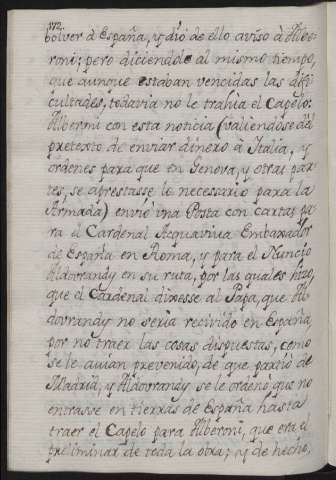 172.
bolver à España, y dió de ello aviso à Albe-
roni; pero diciendole al mismo tiempo,
que aunque estaban vencidas las difi
cultades, todavia no le trahia el Capelo:
Alberoni con esta noticia (valiendose del
pretexto de enviar dinero à Italia, y
ordenes para que en Genova, y otras par
tes, se aprestasse lo necessario para la
Armada) envió una Posta con cartas pa
ra el Cardenal Acquaviva Embaxador
de España en Roma, y para el Nuncio
Aldovrandy en su ruta, por las quales hizo,
que el Cardenal dixesse al Papa, que Al
dovrandy no seria recivido en España
por no traer las cosas dispuestas, como
se le avian prevenido, de que partió de
Madrid; y Aldovrandy se le ordenó, que no
entrasse en tierras de España hasta
traer el Capelo para Alberoni, que era el
preliminar de toda la otra; y de hecho,